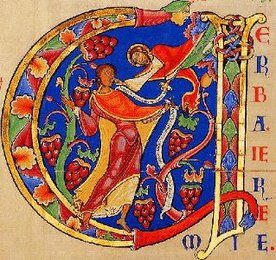 VE
R
B
A
IE
R
E
MIE.